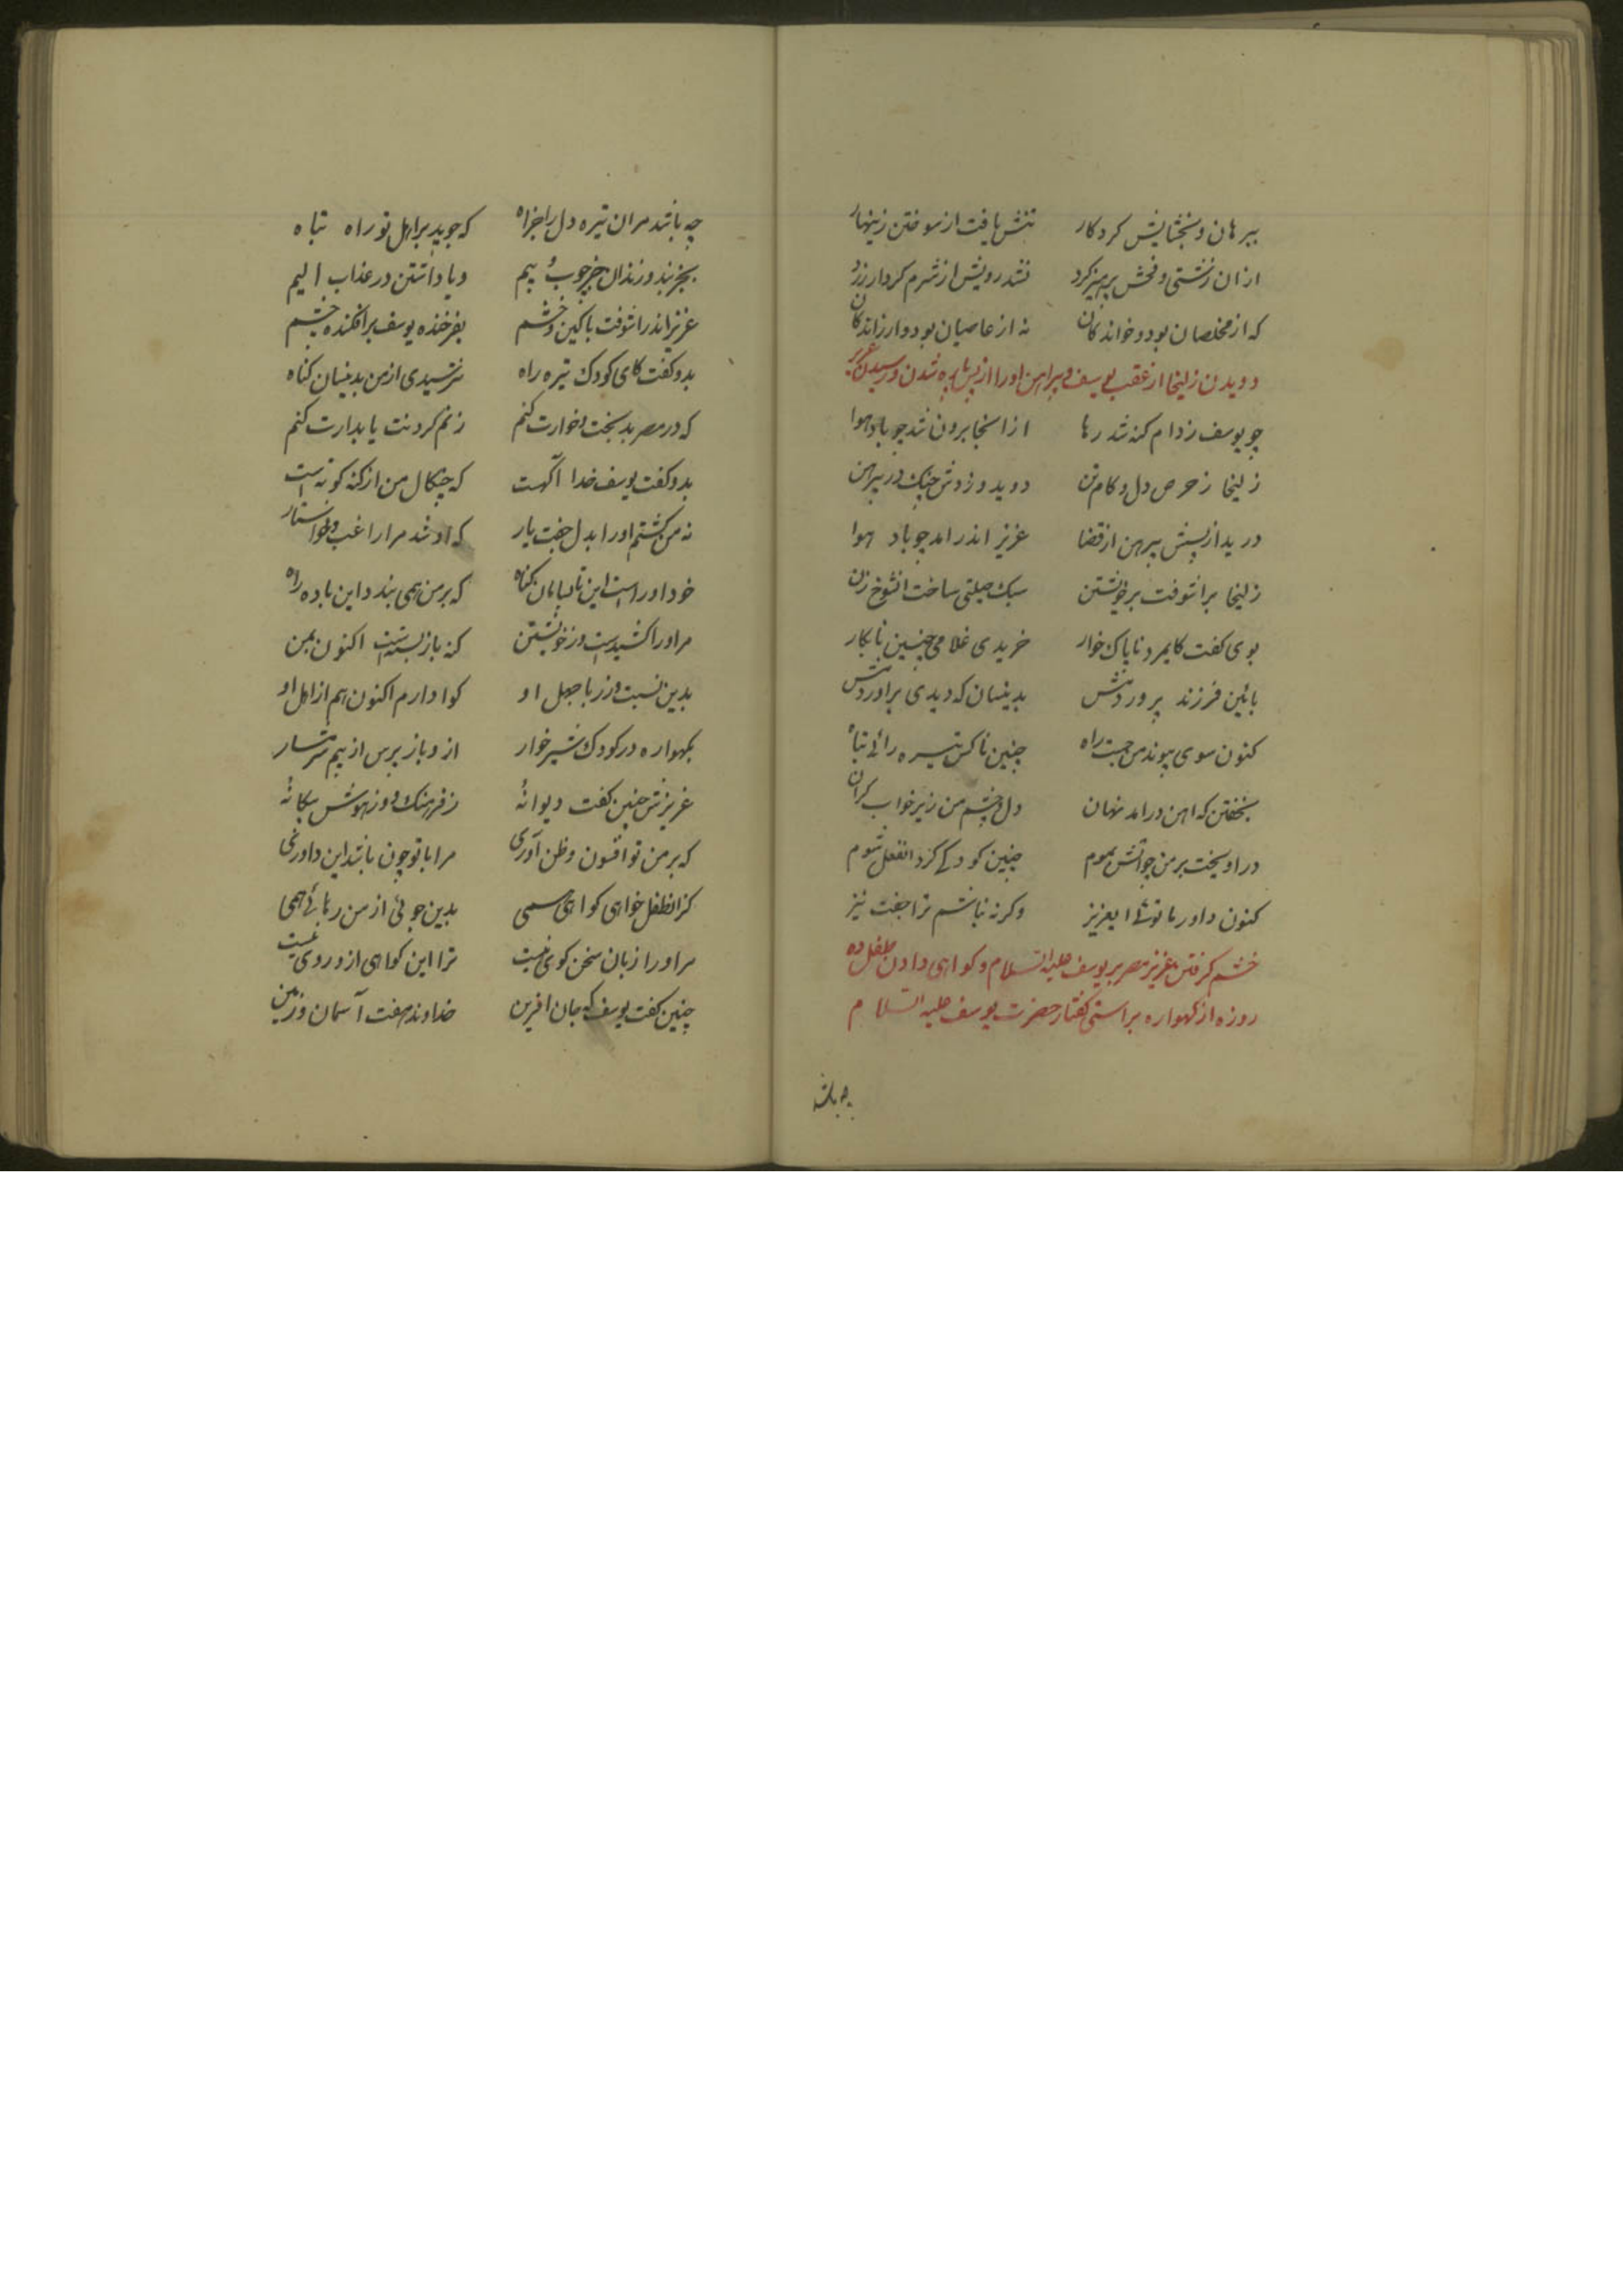 ببرهان و بخشایش کردکار تنش یافت از سوختن زینهار
ازان زشتی و فحش پرهیز کرد نشد رویش از شرم کردار زرد
که از مخلصان بود و خواندکان نه از عاصیان بود و ارزاندکان
دویدن زلیخا از عقب یوسف و پیراهن اورا از پس پاره شدن و رسیدن عزیز
چو یوسف ز دام کنه شد رها از انجا برون شد چو باد هوا
زلیخا ز حرص دل و کام تن دوید و زدش چنک در پیرهن
درید از پسش پیرهن از قضا عزیز اندر امد چو باد هوا
زلیخا براشوفت بر خویشتن سبک حیلتی ساخت انشوخ زن
بوی کفت کایمرد ناپاک خوار خریدی غلامی چنین نابکار
بائین فرزند پروردنش بدینسان که دیدی براوردنش
کنون سوی پیوند من جست راه چنین ناکس تیره رائ تباه
بخفتن که اهن درامد نهان دل و چشم من زیر خواب کران
در اویخت بر من چو اتش بموم چنین کودکی کرد انفعل شوم
کنون داور ما توئی ایعزیز وکرنه نباشم ترا جفت نیز
خشم کرفتن عزیز مصر بر یوسف علیه السلام و کواهی دادن طفل ده
روزه از کهواره براستی کفتار حضرت یوسف علیه السلام
چه باشد
چه باشد مران تیره دل را جزاه که جوید بر اهل تو راه تباه
بجز بند و زندان بجز چوب بیم و یا داشتن در عذاب الیم
عزیز اندر اشوفت با کین و خشم بفرخنده یوسف برافکنده چشم
بدو کفت کای کودک تیره راه نترسیدی از من بدینسان کناه
که در مصر بدبخت و خوارت کنم زنم کردنت یا بدارت کنم
بدو کفت یوسف خدا آکهست که چنکال من از کنه کوته است
نه من کشتم اورا بدل جفت یار که او شد مرا راغب و خواستار
خود اوراست این تابسامان کناه که بر من همی بندد این باده راه
مر اورا کشیدست وز خویشتن کنه باز بسته است اکنون بمن
بدین نسبت وزر با جهل او کوا دارم اکنون هم از اهل او
بکهواره در کودک شیرخوار ازو باز پرس از بیم شرمسار
عزیزش چنین کفت دیوانهٔ ز فرهنک و ز هوش بیکانهٔ
که بر من تو افسون وظن آوری مرا با تو چون باشد این داوری
کز انطفل خواهی کواهی همی بدین جوئی از من رهائی همی
مر اورا زبان سخن کوی نیست ترا این کواهی ازو روی نیست
چنین کفت یوسف که جان افرین خداوند هفت آسمان و زمین